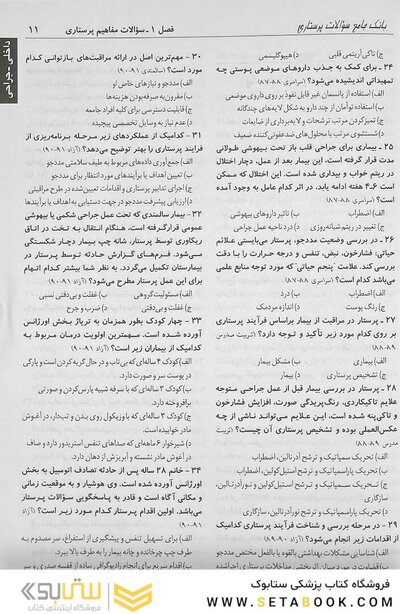 بانک جامع سؤالات پرستاری
فصل ۱ ـ سؤالات مفاهیم پرستاری
۱۱
داخلی ـ جراحی
ج) تاکی‌آریتمی قلبی
د) هیپوگلیسمی
۲۴ ـ برای کمک به جذب داروهای موضعی پوستی چه
تمهیداتی اندیشیده می‌شود؟ (سراسری ۸۸-۸۷)
الف) استفاده از پانسمان غیر قابل نفوذ بر روی داروی موضعی
ب) استفاده توأمان از چند دارو به شکل لایه‌های چندگانه
ج) تمیز کردن مرتب ترشحات و لایه‌برداری از ضایعات
د) شستشوی مرتب با محلول‌های ضدعفونی کننده ضعیف
۲۵ ـ بیماری برای جراحی قلب باز تحت بیهوشی طولانی
مدت قرار گرفته است، این بیمار بعد از عمل، دچار اختلال
در ریتم خواب و بیداری شده است. این اختلال که ممکن
است ۶ـ۴ هفته ادامه یابد، در اثر کدام عامل به وجود آمده
است؟ (سراسری ۸۸-۸۷)
الف) اضطراب
ب) تاثیر داروهای بیهوشی
ج) تغییر در ریتم شبانه‌روزی
د) درد ناحیه عمل جراحی
۲۶ ـ در بررسی وضعیت مددجو، پرستار می‌بایستی علائم
حیاتی: فشارخون، نبض، تنفس و درجه حرارت را با دقت
بررسی کند. علامت پنجم حیاتی که مورد توجه منابع علمی
می‌باشد کدام است؟ (سراسری ۸۸-۸۷)
الف) اضطراب
ب) درد
ج) رنگ پوست
د) اندازه مردمک
۲۷ ـ پرستار در مراقبت از بیمار براساس فرآیند پرستاری
بر روی کدام مورد زیر تأکید و توجه دارد؟ (تربیت مدرس
۸۹-۸۸)
الف) بیماری
ب) مشکل بیمار
ج) تشخیص پرستاری
د) بیمار
۲۸ ـ پرستار در بررسی بیمار قبل از عمل جراحی متوجه
علایم تاکیکاردی، رنگ‌پریدگی صورت، افزایش فشارخون
و تاکی‌پنه شده است. این علایم می‌تواند ناشی از چه
عکس‌العملی بوده و تشخیص پرستاری آن چیست؟ (تربیت
مدرس ۸۹-۸۸)
الف) تحریک سمپاتیک و ترشح آدرنالین، اضطراب
ب) تحریک پاراسمپاتیک و ترشح استیل‌کولین، اضطراب
ج) تحریک سمپاتیک و ترشح استیل‌کولین و نورآدرنالین،
سازگاری
د) تحریک پاراسمپاتیک و ترشح نورآدرنالین، سازگاری
۲۹ ـ در مرحله بررسی و شناخت فرآیند پرستاری کدامیک
از اقدامات زیر انجام می‌شود؟ (آزاد ۹۰-۸۹)
الف) شناسایی مشکلات بهداشتی بالقوه یا بالفعل مختص مددجو
۳۰ ـ مهم‌ترین اصل در ارائه مراقبت‌های بازتوانی کدام
مورد است؟ (سالمندی ۹۱-۹۰)
الف) مددجو و نیازهای خاص او
ب) مقرون‌به صرفه‌بودن هزینه‌ها
ج) قابلیت دسترسی برای کلیه افراد جامعه
د) عدم نیاز به وسایل تخصصی پیچیده
۳۱ ـ کدامیک از عملکردهای زیر مرحله برنامه‌ریزی از
فرایند پرستاری را بهتر توضیح می‌دهد؟ (آزاد ۹۱-۹۰)
الف) جمع‌آوری داده‌های مربوط به طیف سلامتی مددجو
ب) تعیین اهداف یا برآیندهای مورد انتظار برای مددجو
ج) اجرای تدابیر پرستاری و اقدامات تعیین‌شده در طرح مراقبتی
د) ارزیابی پیشرفت مددجو در جهت دستیابی به اهداف یا برآیندها
۳۲ ـ بیمار سالمندی که تحت عمل جراحی شکمی با بیهوشی
عمومی قرارگرفته است. هنگام انتقال به تخت در اتاق
ریکاوری توسط پرستار، شانه چپ بیمار دچار شکستگی
می‌شود. فرم‌های گزارش حادثه توسط پرستار در
بیمارستان تکمیل می‌گردد. به نظر شما بیشتر کدام اتهام
برای این عمل پرستار مطرح می‌شود؟ (آزاد ۹۱-۹۰)
الف) مسئولیت گروهی
ب) غفلت و بی‌دقتی نسبی
ج) غفلت و بی‌دقتی
د) ضرب و جرح
۳۳ ـ چهار کودک بطور همزمان به تریاژ بخش اورژانس
آورده شده است. مهمترین اولویت درمان مربوط به
کدامیک از بیماران زیر است؟ (آزاد ۹۱-۹۰)
الف) کودک ۴ ساله‌ای که بی‌تاب و در حال گریه کردن است و پارگی
در پوست سر و صورت دارد.
ب) کودک ۳ ساله‌ای که با سرفه شبیه پارس‌کردن و صورتی
برافروخته دارد.
ج) کودک ۲ ساله‌ای که با وزیکول روی بدن و تب‌دار، در آغوش
مادر خوابیده است.
د) شیرخوار ۶ ماهه‌ای که صداهای تنفس استریدور دارد و صاف
در آغوش مادر نشسته و آبریزش از دهان دارد.
۳۴ ـ خانم ۲۸ ساله پس از حادثه تصادف اتومبیل به بخش
اورژانس آورده شده است. وی هوشیار و به موقعیت زمانی
و مکانی آگاه است و قادر به پاسخگویی سؤالات پرستار
می‌باشد. اولین اقدام پرستار کدام مورد زیر است؟ (آزاد
۹۱-۹۰)
الف) برای تسهیل تنفس و پیشگیری از استفراغ، سر مصدوم به
طرف چپ چرخانده و چانه بیمار را به طرف بالا ببرد.
فروشگاه کتاب پزشکی ستابوک
WWW.SETABOOK.COM
ستابوک
فروشگاه اینترنتی کتاب